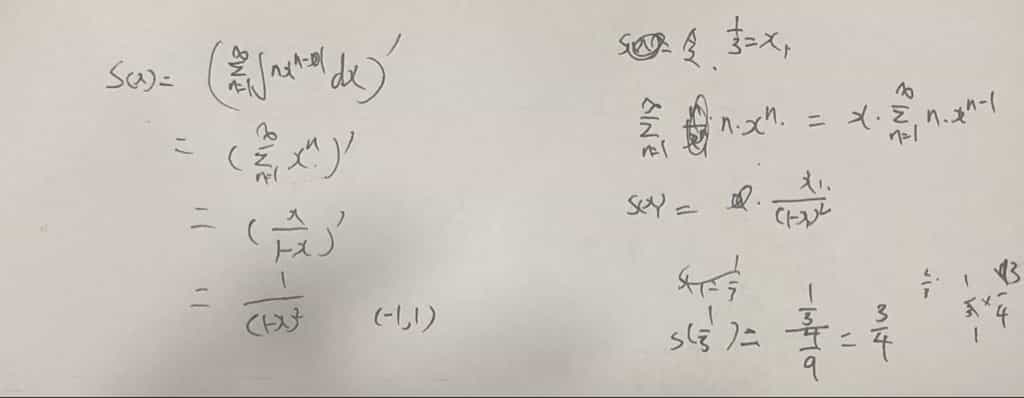 S(x) = (∑_{n=1}^{∞} ∫ nx^{n-1} dx)'
= (∑_{n=1}^{∞} x^n)'
= (x/(1-x))'
= 1/(1-x)^2 (-1,1)
1/3 = x,
∑_{n=1}^{∞} n·x^n = x·∑_{n=1}^{∞} n·x^{n-1}
S(x) = x/(1-x)^2
S(1/3) = (1/3)/(4/9) = 3/4